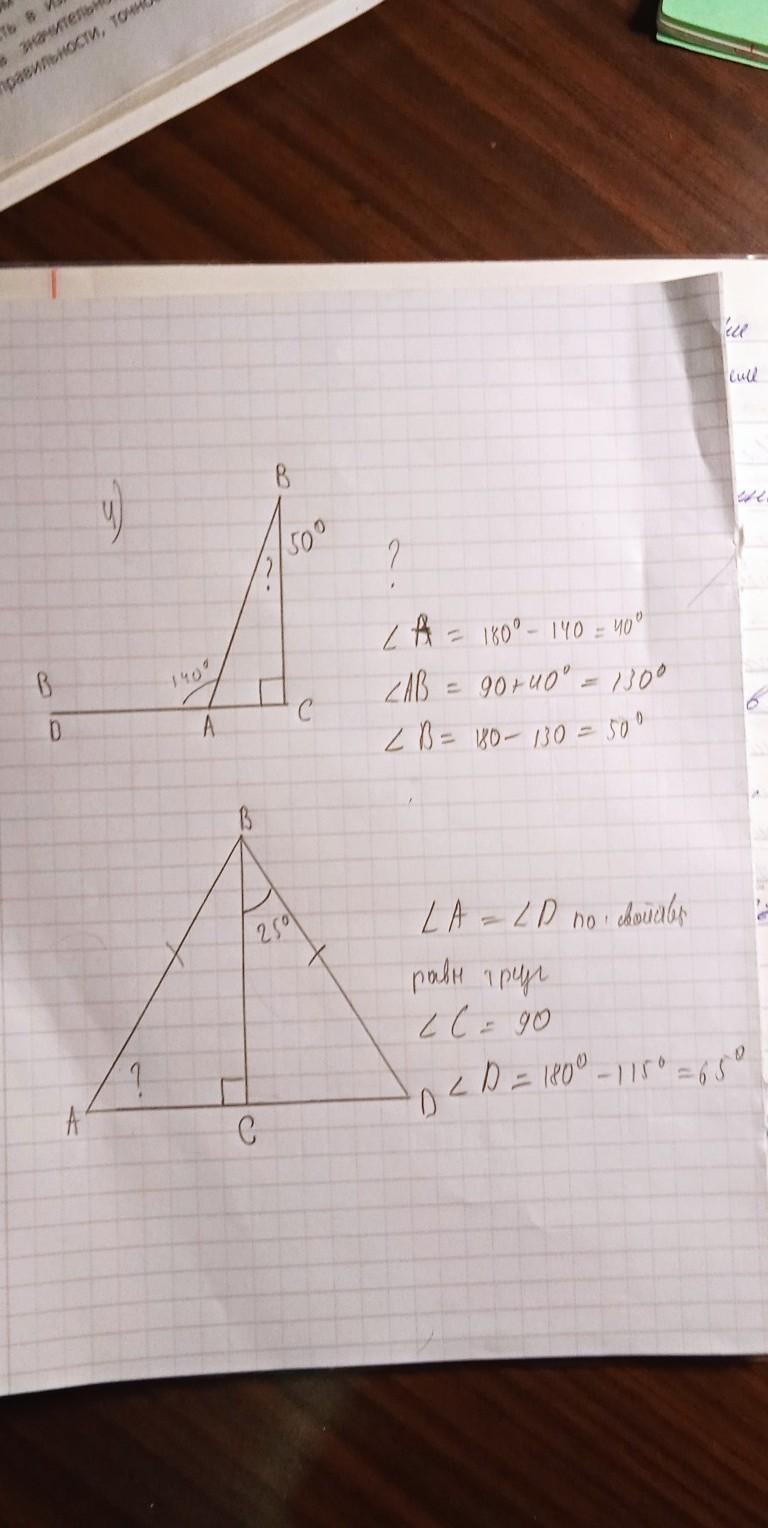 ть в из
значительно
правильности, точно
4)
B
50°
?
?
140°
B
D
A
C
∠A = 180° - 140 = 40°
∠AB = 90+40° = 130°
∠B = 180 - 130 = 50°
B
25°
?
A
C
D
∠A = ∠D по
равн треуг
∠C = 90
∠D = 180° - 115° = 65°